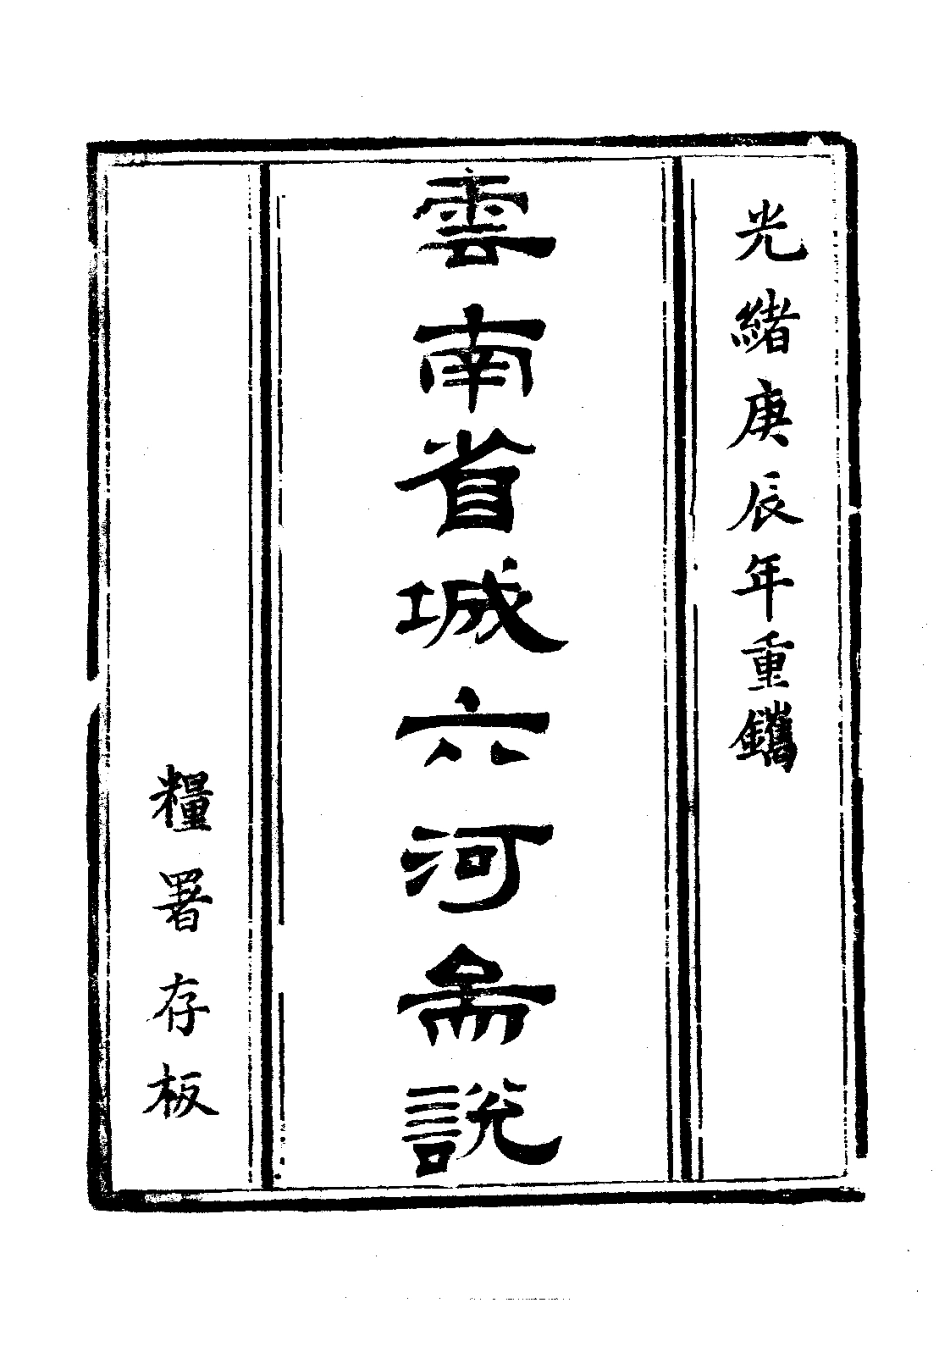 光緒庚辰年重鐫
雲南省城六河圖說
糧署存板